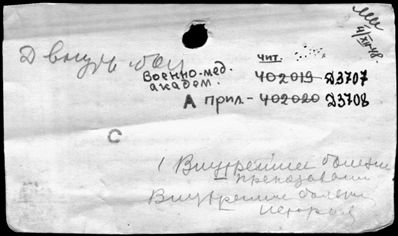 Д внутр. бол
Военно-мед.
академ.
чит.
402019 Д3707
А прил - 402020 Д3708
С
1 Внутренние болезни
преподавание
Внутренние болезни
история